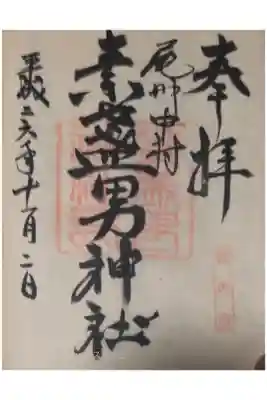 奉拝
尾州中村
素盞男神社
平成二六年十一月二日